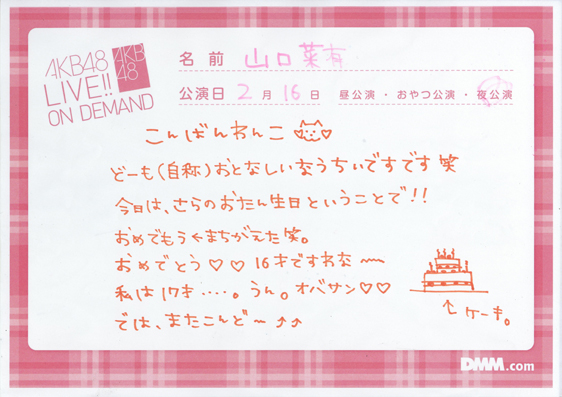 AKB48
LIVE!!
ON DEMAND
AKB
48
名前 山口菜有
公演日 2月16日 昼公演・おやつ公演・夜公演
こんばんわんこ
どーも(自称)おとなしいなうちぃですです笑
今日は、さらのおたん生日ということで!!
おめでもう←まちがえた笑。
おめでとう♡♡ 16才ですわな〰
私は17才‥‥。うん。オバサン♡♡
では、またこんど〜⤴⤴
↑ケーキ。
DMM.com